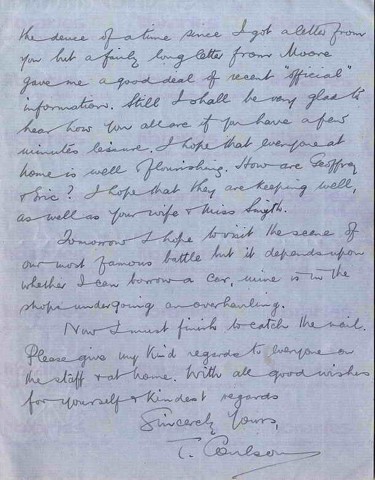 the deuce of a time since I got a letter from
you but a fairly long letter from Moore
gave me a good deal of recent "official"
information. Still I shall be very glad to
hear how you all are if you have a few
minutes leisure. I hope that everyone at
home is well & flourishing. How are Geoffrey
& Eric? I hope that they are keeping well,
as well as your wife & Miss Smyth.
Tomorrow I hope to visit the scene of
our most famous battle but it depends upon
whether I can borrow a car, mine is in the
shops undergoing an overhauling.
Now I must finish to catch the mail.
Please give my kind regards to everyone on
the staff & at home. With all good wishes
for yourself & kindest regards
Sincerely Yours,
T. Coulson